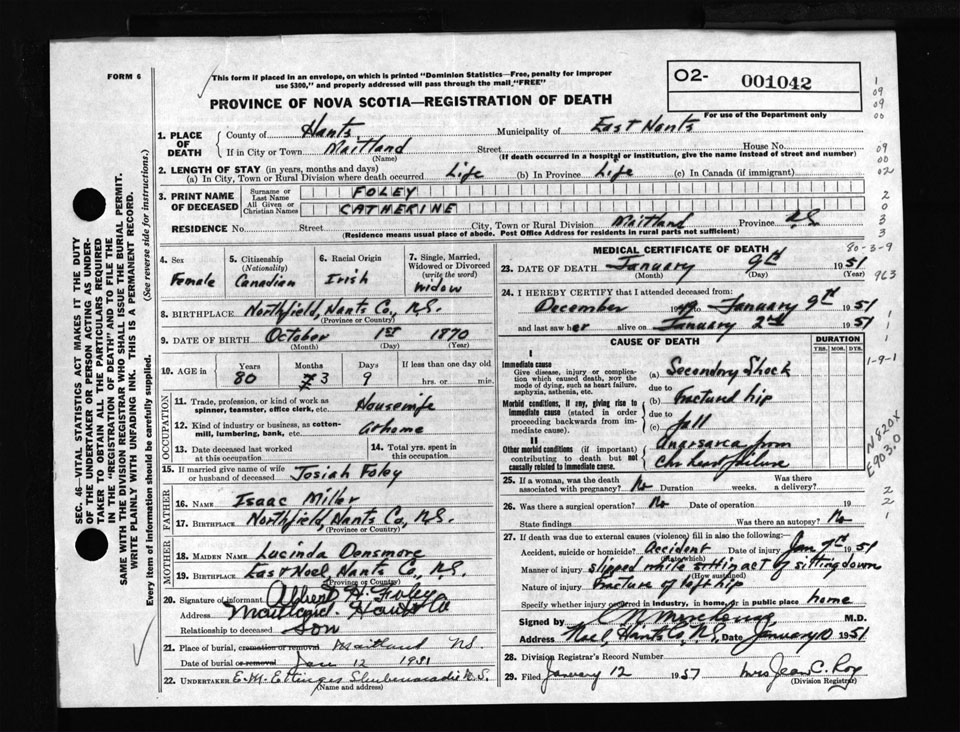 FORM 6
This form if placed in an envelope, on which is printed "Dominion Statistics—Free, penalty for improper
use $300," and properly addressed will pass through the mail "FREE"
O2- 001042
For use of the Department only
PROVINCE OF NOVA SCOTIA—REGISTRATION OF DEATH
1. PLACE OF DEATH
County of Hants Municipality of East Hants
If in City or Town Maitland Street House No.
(Name) (If death occurred in a hospital or institution, give the name instead of street and number)
2. LENGTH OF STAY (in years, months and days)
(a) In City, Town or Rural Division where death occurred Life (b) In Province Life (c) In Canada (if immigrant)
3. PRINT NAME OF DECEASED
Surname or Last Name FOLEY
All Given or Christian Names CATHERINE
RESIDENCE No. Street City, Town or Rural Division Maitland Province N.S.
(Residence means usual place of abode. Post Office Address for residents in rural parts not sufficient)
4. Sex Female
5. Citizenship (Nationality) Canadian
6. Racial Origin Irish
7. Single, Married, Widowed or Divorced (write the word) Widow
8. BIRTHPLACE Northfield, Hants Co., N.S.
(Province or Country)
9. DATE OF BIRTH October 1st 1870
(Month) (Day) (Year)
10. AGE in Years Months Days If less than one day old
80 3 9 hrs. or min.
OCCUPATION
11. Trade, profession, or kind of work as spinner, teamster, office clerk, etc. Housewife
12. Kind of industry or business, as cotton-mill, lumbering, bank, etc. At home
13. Date deceased last worked at this occupation
14. Total yrs. spent in this occupation
15. If married give name of wife or husband of deceased Josiah Foley
FATHER
16. NAME Isaac Miller
17. BIRTHPLACE Northfield, Hants Co., N.S.
(Province or Country)
MOTHER
18. MAIDEN NAME Lucinda Densmore
19. BIRTHPLACE East Noel Hants Co., N.S.
(Province or Country)
20. Signature of informant Albert H. Foley
Address Maitland Hants
Relationship to deceased Son
21. Place of burial, cremation or removal Maitland N.S.
Date of burial or removal Jan 12 1951
22. UNDERTAKER E. M. Ettinger Shubenacadie N.S.
(Name and address)
MEDICAL CERTIFICATE OF DEATH
80-3-9
23. DATE OF DEATH January 9th 1951
(Month) (Day) (Year)
24. I HEREBY CERTIFY that I attended deceased from:
December 1949 to January 9th 1951
and last saw her alive on January 2nd 1951
CAUSE OF DEATH DURATION
YRS. MOS. DYS.
I
Immediate cause
Give disease, injury or complication which caused death, NOT the mode of dying, such as heart failure, asphyxia, asthenia, etc.
(a) Secondary Shock
due to
Morbid conditions, if any, giving rise to immediate cause (stated in order proceeding backwards from immediate cause).
(b) Fractured hip
due to
(c) fall
II
Other morbid conditions (if important) contributing to death but not causally related to immediate cause.
Anasarca from
Chr heart failure
25. If a woman, was the death associated with pregnancy? No Duration weeks. Was there a delivery?
26. Was there a surgical operation? No Date of operation 19
State findings Was there an autopsy? No
27. If death was due to external causes (violence) fill in also the following:
Accident, suicide or homicide? Accident Date of injury Jan 9th 1951
(State which)
Manner of injury slipped while sitting act of sitting down
(How sustained)
Nature of injury Fracture of left hip
Specify whether injury occurred in industry, in home, or in public place home
Signed by M.D.
Address Noel, Hants Co, N.S. Date January 10 1951
28. Division Registrar's Record Number
29. Filed January 12 1951 Mrs Jean C. Roy
(Division Registrar)
SEC. 46—VITAL STATISTICS ACT MAKES IT THE DUTY
OF THE UNDERTAKER OR PERSON ACTING AS UNDERTAKER TO OBTAIN ALL THE PARTICULARS REQUIRED
IN THE "REGISTRATION OF DEATH" AND TO FILE THE
SAME WITH THE DIVISION REGISTRAR WHO SHALL ISSUE THE BURIAL PERMIT.
WRITE PLAINLY WITH UNFADING INK. THIS IS A PERMANENT RECORD.
Every item of information should be carefully supplied. (See reverse side for instructions.)
1
09
09
00
09
00
02
2
0
3
3
963
1
1
1-9-1
N820X
E903.0
2
2
1